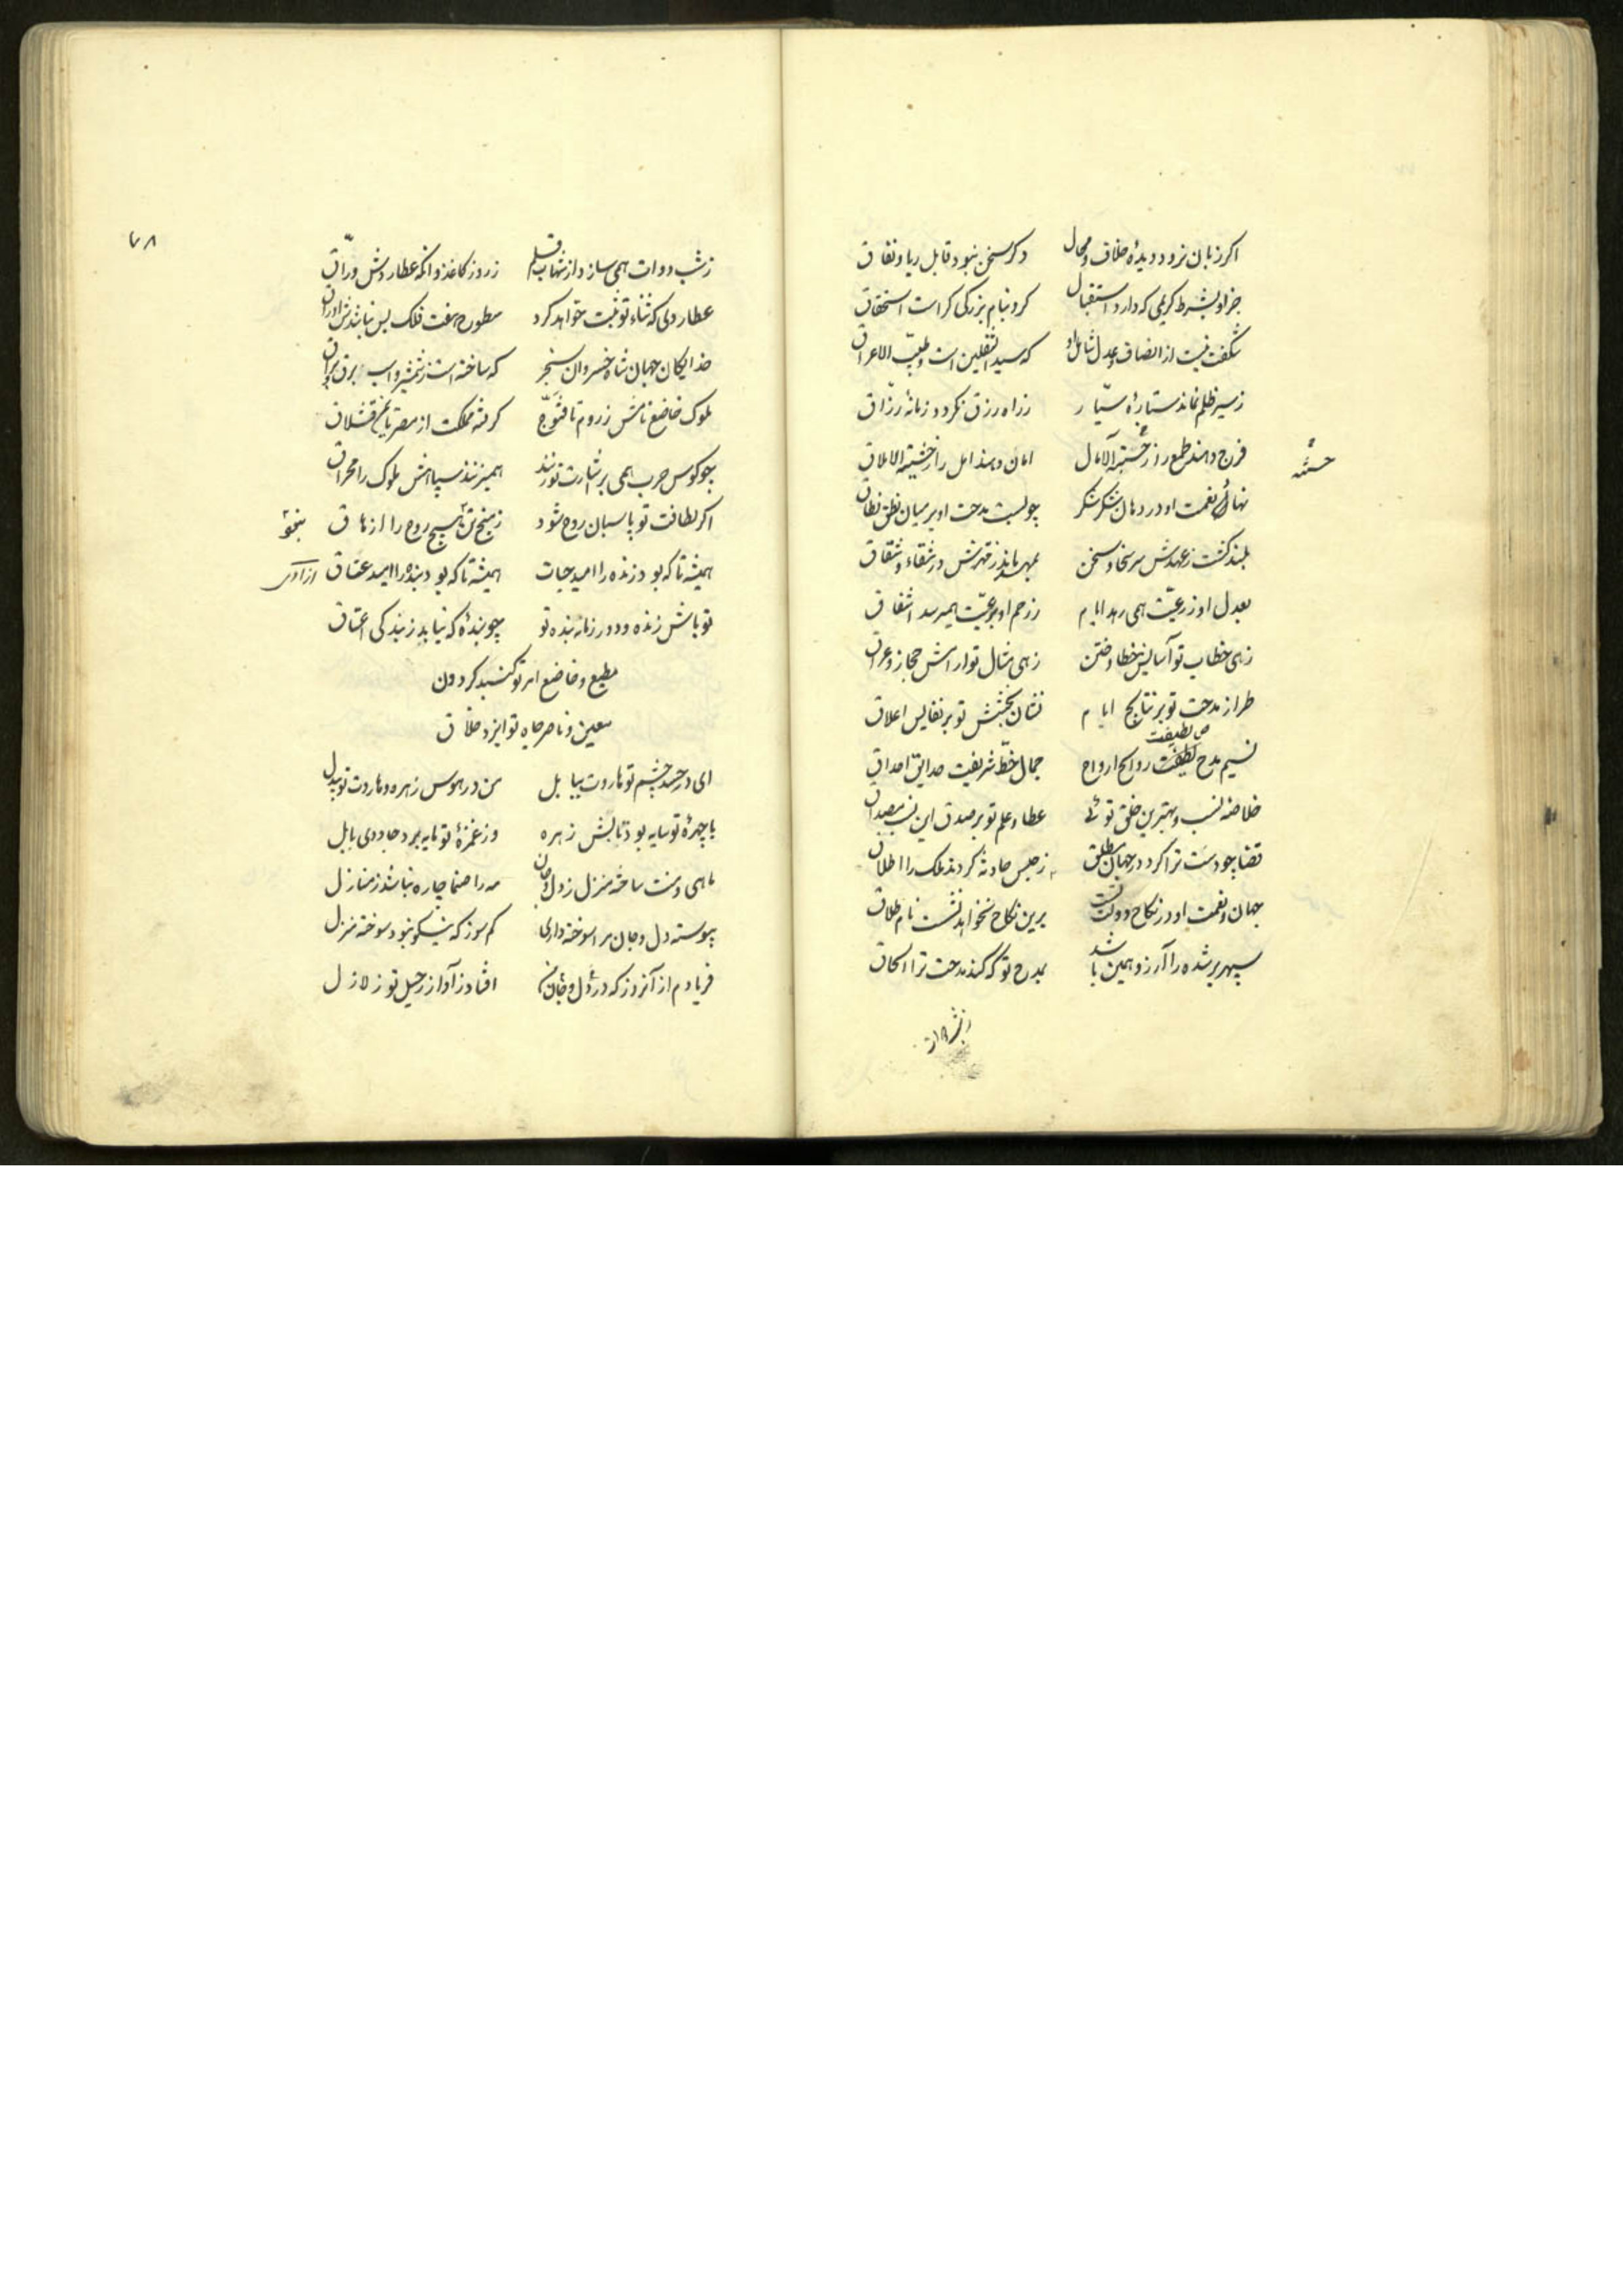 اکر زبان نرود دیدهٔ خلاق و محال دکر سخن نبود قابل ریا و نفاق
جز او بشرط کریمی که دارد استقبال کرد بنام بزرکی کراست استحقاق
شکفت نیست از انصاف و عدل شامل او که سید الثقلین است و طیب الاعراق
ز سیر ظلم نماند ستارهٔ سیّار ز راه رزق نکردد زمانهٔ رزّاق
فرج دهند طمع را ز خیبة الآمال امان دهند امل را ز خشیة الاملاق
خشیة
نهاد نعمت او در دهان شکر شکر چو بست مدحت او بر میان نطق نطاق
بلند کشت ز عهدش سر سخا و سخن بماند ز قهرش در شقاء و شقاق
بعدل او ز رعیّت همی رمد ایام ز رحم او برعیّت همیرسد اشفاق
زهی خطاب تو آسایش خطا و ختن زهی مثال تو آرامش حجاز و عراق
طراز مدحت تو بر نتایج ایام نشان بخشش تو بر نفایس اعلاق
ص لطیفت
نسیم مدح لطیفت روایح ارواح جمال خطّ شریفت حدایق احداق
خلاصهٔ نسب و بهترین خلق توئی عطا و علم تو بر صدق این نسب مصداق
قضا چو دست ترا کرد در جهان مطلق ز حبس حادثه کردند ملک را اطلاق
جهان و نعمت او در نکاح دولت تست برین نکاح نخواهد نشست نام طلاق
سپهر بر شده را آرزو همین باشد بمدح تو که کند مدحت ترا الحاق
ز شب دوات
۷۸
ز شب دوات همی سازد از شهاب قلم ز روز کاغذ و انکه عطاردش ورّاق
عطاردی که ثناء تو ثبت خواهد کرد سطوح هفت فلک بس نباشدش اوراق
خدایکان جهان شاه خسروان سنجر که ساخته است ز شمشیر و اسب برق و براق
ملوک خاضع نامش ز روم تا قنّوج کرفته مملکت از مصر تا قشلاق
چو کوس حرب همی بر اشارت تو زنند همیزنند سپاهش ملوک را مخراق
اکر لطافت تو پاسبان روح شود ز هیچ روح را ازهاق
همیشه تا که بود زنده را امید حیات همیشه تا که بود بنده را امید عتاق
ازادی
تو باش زنده و دور زمانه بنده تو چو بندهٔ که نیابد ز بندکی اعتاق
مطیع و خاضع امر تو کنبد کردون
معین و ناصر جاه تو ایزد خلاق
ای در حسد چشم تو هاروت ببابل من در هوس زهره و هاروت تو بیدل
با چهرهٔ تو سایه بود تابش زهره وز غمزهٔ تو مایه برد جادوی بابل
ماهی و منت ساخته منزل ز دل و جان مه را صنما چاره نباشد ز منازل
پیوسته دل و جان مرا سوخته داری کم سوز که نیکو نبود سوخته منزل
فریادم از آنروز که در دل و جان من افتاد ز آواز رحیل تو زلازل